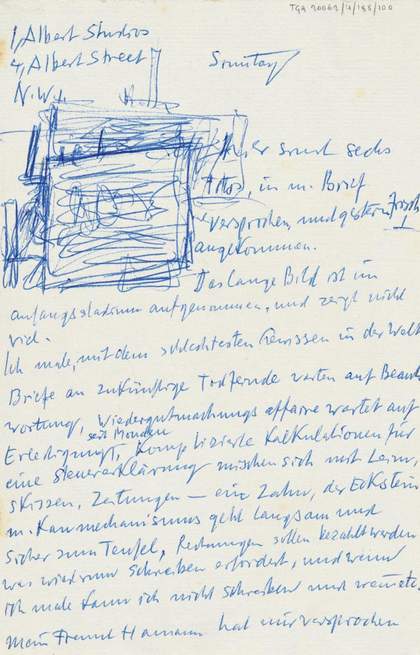 TGA 20062/4/188/100
1, Albert Studios
4, Albert Street
N.W.1.
Sonntag
Hier sind sechs
in m. Brief
versprochen, und gestern frisch
angekommen.
Das lange Bild ist im
anfangsstadium aufgenommen, und zeigt nicht
viel.
Ich male, mit dem schlechtesten Gewissen in der Welt
Briefe an zukünftige warten auf Beant
wortung, Wiedergutmachungs affaire wartet auf
Erledigung, seit Monden
Komplizierte Kalkulationen für
eine Steuererklärung mischen sich mit
Skizzen, Zeitungen — ein Zahn, der Eckstein
m. Kaumechanismus geht langsam und
sicher zum Teufel, Rechnungen sollen bezahlt werden
was wiederum schreiben erfordert, und wenn
ich male kann ich nicht schreiben und
Mein Freund Hamann hat mir versprochen